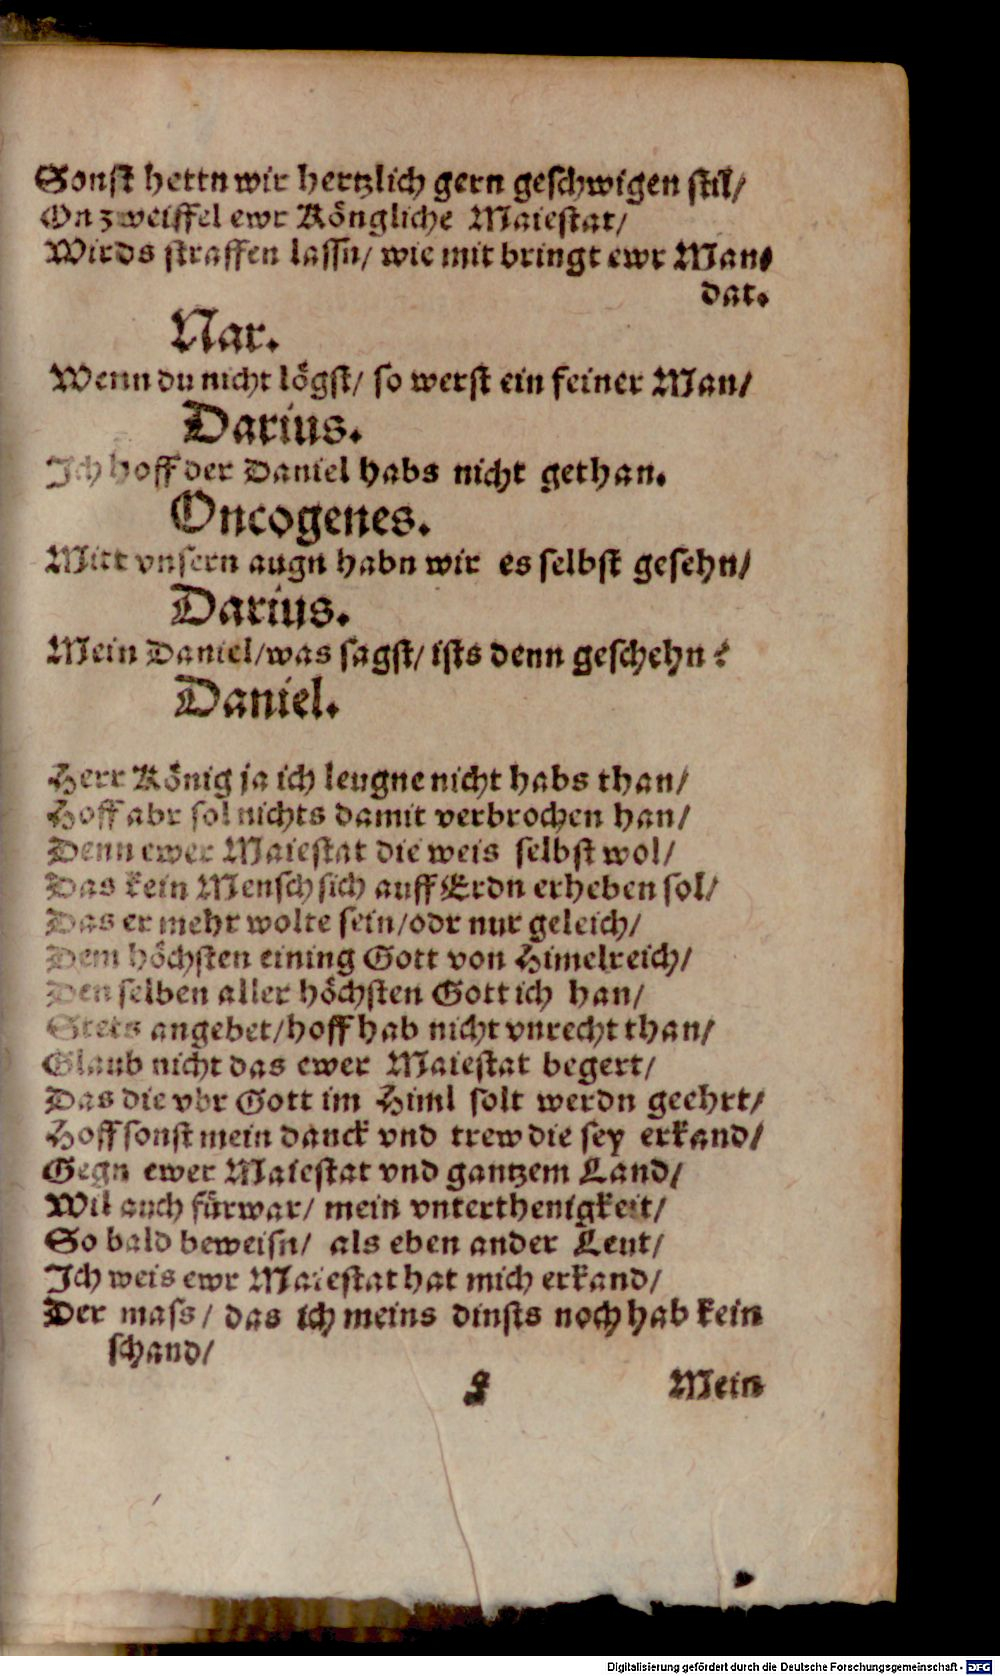 Sonst hettn wir hertzlich gern geschwigen stil/
On zweiffel ewr Köngliche Maiestat/
Wirds straffen lassn/ wie mit bringt ewr Man⸗
dat.
Nar.
Wenn du nicht lögst/ so werst ein feiner Man/
Darius.
Ich hoff der Daniel habs nicht gethan.
Oncogenes.
Mitt vnsern augn habn wir es selbst gesehn/
Darius.
Mein Daniel/was sagst/ ists denn geschehn?
Daniel.
Herr König ja ich leugne nicht habs than/
Hoff abr sol nichts damit verbrochen han/
Denn ewer Maiestat die weis selbst wol/
Das kein Mensch sich auff Erdn erheben sol/
Das er mehr wolte sein/odr nur geleich/
Dem höchsten eining Gott von Himelreich/
Den selben aller höchsten Gott ich han/
Stets angebet/hoff hab nicht vnrecht than/
Glaub nicht das ewer Maiestat begert/
Das die vbr Gott im Himl solt werdn geehrt/
Hoff sonst mein danck vnd trew die sey erkand/
Gegn ewer Maiestat vnd gantzem Land/
Wil auch fürwar/ mein vnterthenigkeit/
So bald beweisn/ als eben ander Leut/
Ich weis ewr Maiestat hat mich erkand/
Der mass/ das ich meins dinsts noch hab kein
schand/
F Mein
Digitalisierung gefördert durch die Deutsche Forschungsgemeinschaft - DFG